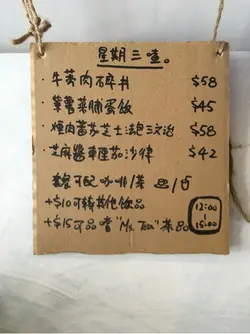 星期三嗱。
· 牛蒡肉碎丼 $58
· 薯薯菜脯蛋飯 $45
· 煙肉蕃茄芝士法包三文治 $58
· 芝麻醬車厘茄沙律 $42
套餐可配咖啡/茶
+$10可轉其他飲品
+$15可品嚐"Ms. Tea"茶品
12:00
|
15:00